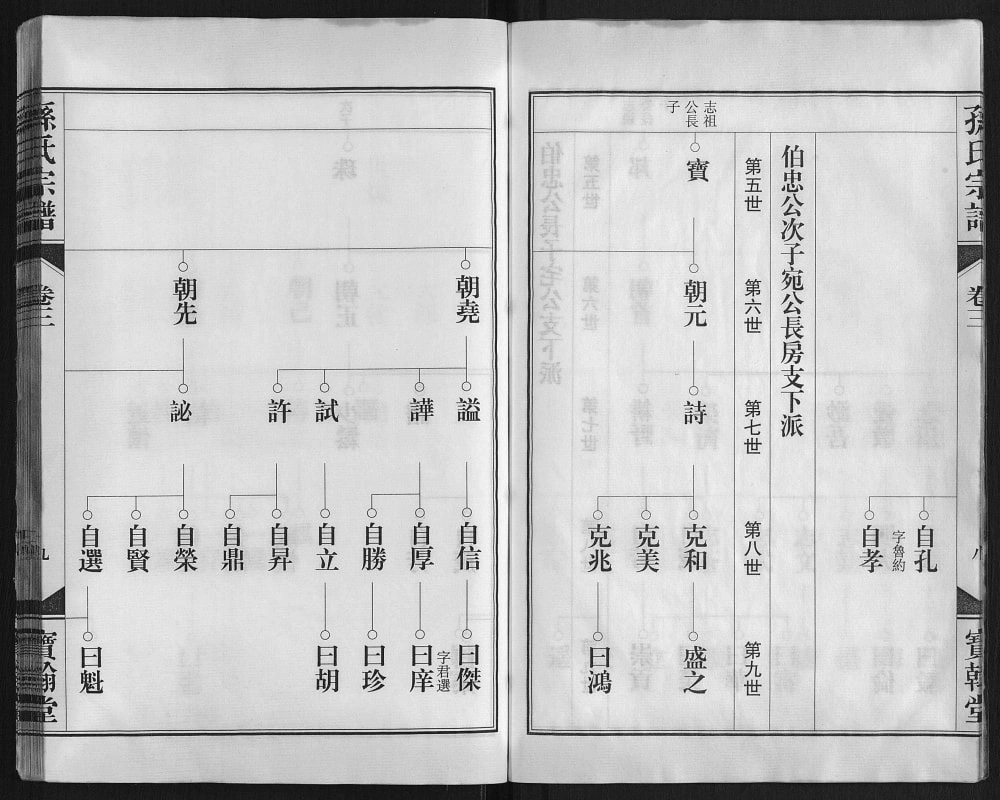 孫氏宗譜
卷三
八
寶翰堂
自孔
字魯約
自孝
伯忠公次子宛公長房支下派
第五世
第六世
第七世
第八世
第九世
志祖
公長
子
寶
朝元
詩
克和
克美
克兆
盛之
曰鴻
朝堯
朝先
謚
譁
試
許
訫
自信
自厚
自勝
自立
自昇
自鼎
自榮
自賢
自選
曰傑
字君選
曰庠
曰珍
曰胡
曰魁
孫氏宗譜
卷三
九
寶翰堂